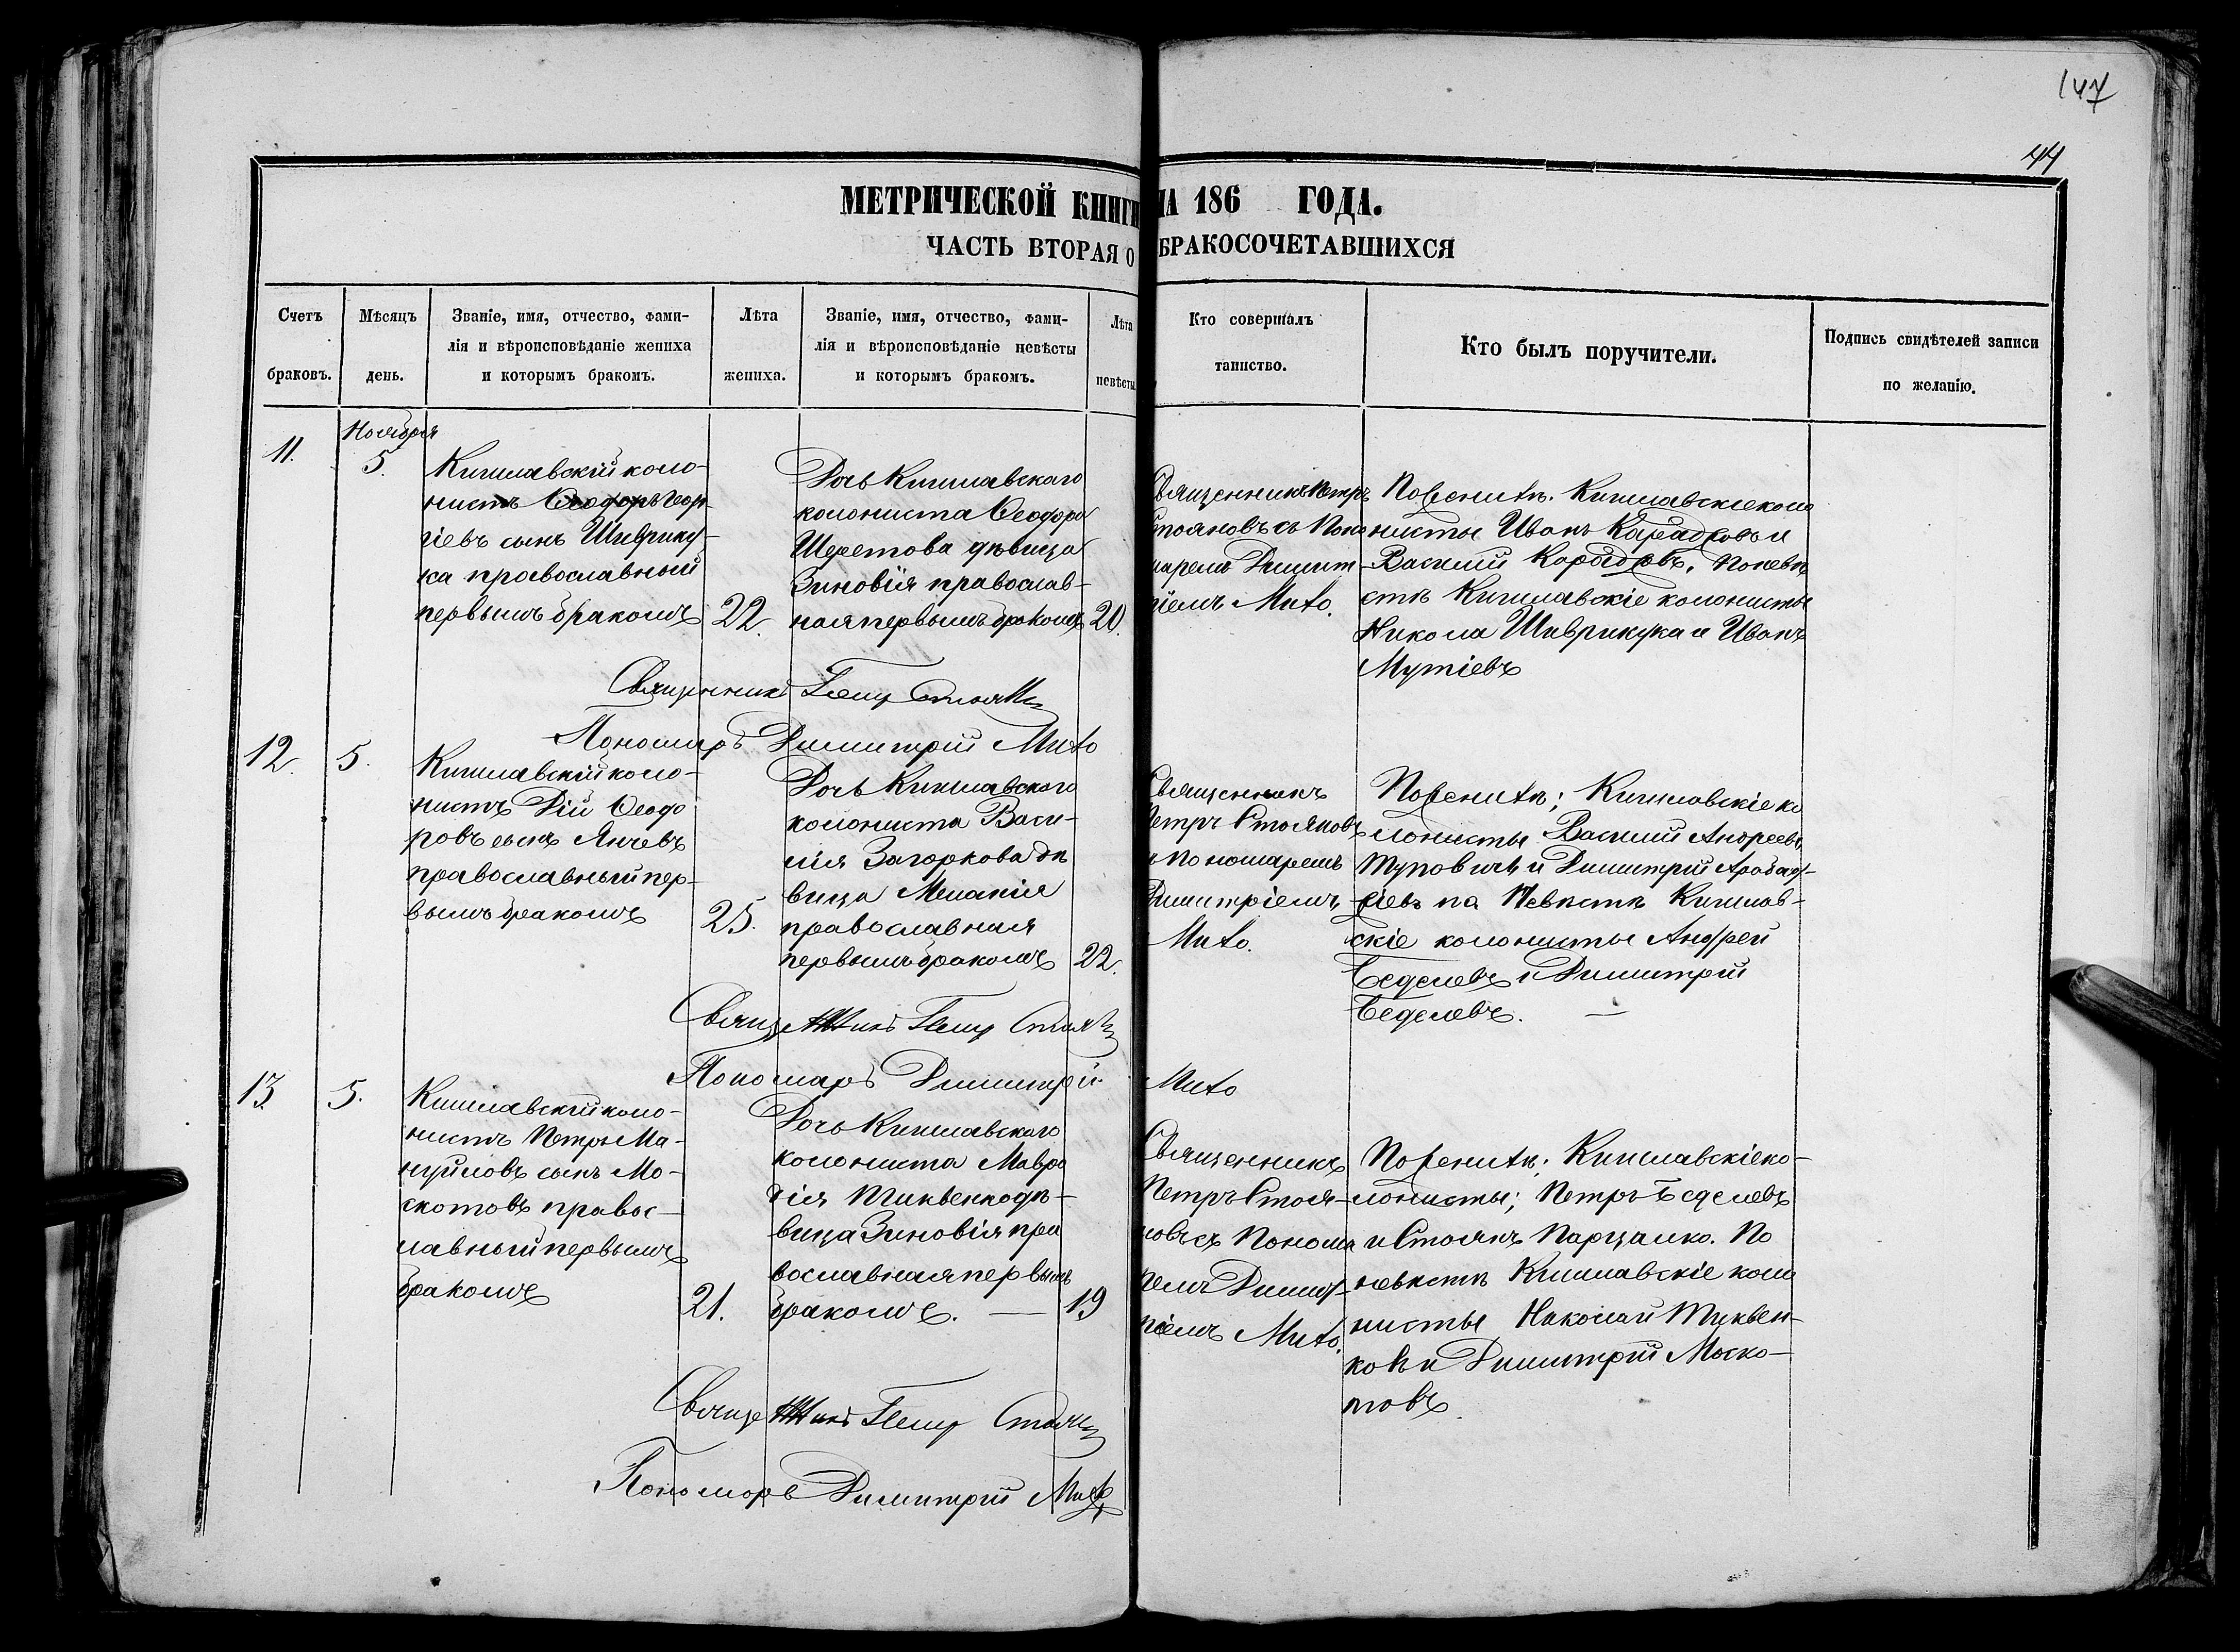 147
44
МЕТРИЧЕСКОЙ КНИГИ НА 186 ГОДА.
ЧАСТЬ ВТОРАЯ О БРАКОСОЧЕТАВШИХСЯ
Счетъ браковъ.
Мѣсяцъ день.
Званіе, имя, отчество, фами-
лія и вѣроисповѣданіе жениха
и которымъ бракомъ.
Лѣта жениха.
Званіе, имя, отчество, фами-
лія и вѣроисповѣданіе невѣсты
и которымъ бракомъ.
Лѣта невѣсты
Кто совершалъ
таинство.
Кто былъ поручители.
Подпись свидѣтелей записи
по желанію.
11.
Ноября
5.
Кишлавскій коло-
нистъ Ѳеодоръ Геор
гіевъ сынъ Шиврику-
ка православный
первымъ бракомъ
22.
Дочь Кишлавскаго
колониста Ѳеодора
Шеретова дѣвица
Зиновія православ-
ная первымъ бракомъ
20.
Священникъ Петръ
Стояновъ съ Поно
маремъ Димит
ріемъ
По женихѣ. Кишлавскіе коло
нисты Иванъ и
Василій По невѣ
стѣ Кишлавскіе колонисты
Никола Шиврикука и Иванъ
Мутіевъ
Священникъ Петр Стоянов
Пономарь Димитрій
12.
5.
Кишлавскій коло-
нистъ Ѳеодо
ровъ сынъ Янчевъ
православный пер-
вымъ бракомъ
25.
Дочь Кишлавскаго
колониста Васи-
лія Загоркова дѣ
вица Меланія
православная
первымъ бракомъ
22.
Священникъ
Петръ Стояновъ
Пономаремъ
Димитріемъ
По женихѣ; Кишлавскіе ко
лонисты Василій Андреевъ
и Димитрій
по Невѣстѣ Кишлав-
скіе колонисты Андрей
Беделевъ и Димитрій
Беделевъ.
Священникъ Петр Стоянов
Пономарь Димитрій
13.
5.
Кишлавскій коло-
нистъ Петръ Ма-
нуйловъ сынъ Мо-
скотовъ правос-
лавный первымъ
бракомъ
21.
Дочь Кишлавскаго
колониста Мавро
дія Тиквенко дѣ-
вица Зиновія пра
вославная первымъ
бракомъ. —
19
Священникъ
Петръ Стоя-
новъ съ Понома
ремъ Димит-
ріемъ
По женихѣ; Кишлавскіе ко-
лонисты; Петръ Беделевъ
и Стоянъ Парцалко. По
невѣстѣ Кишлавскіе коло
нисты Николай Тиквен-
ковъ и Димитрій Моско-
товъ.
Священникъ Петр Стоянов
Пономарь Димитрій